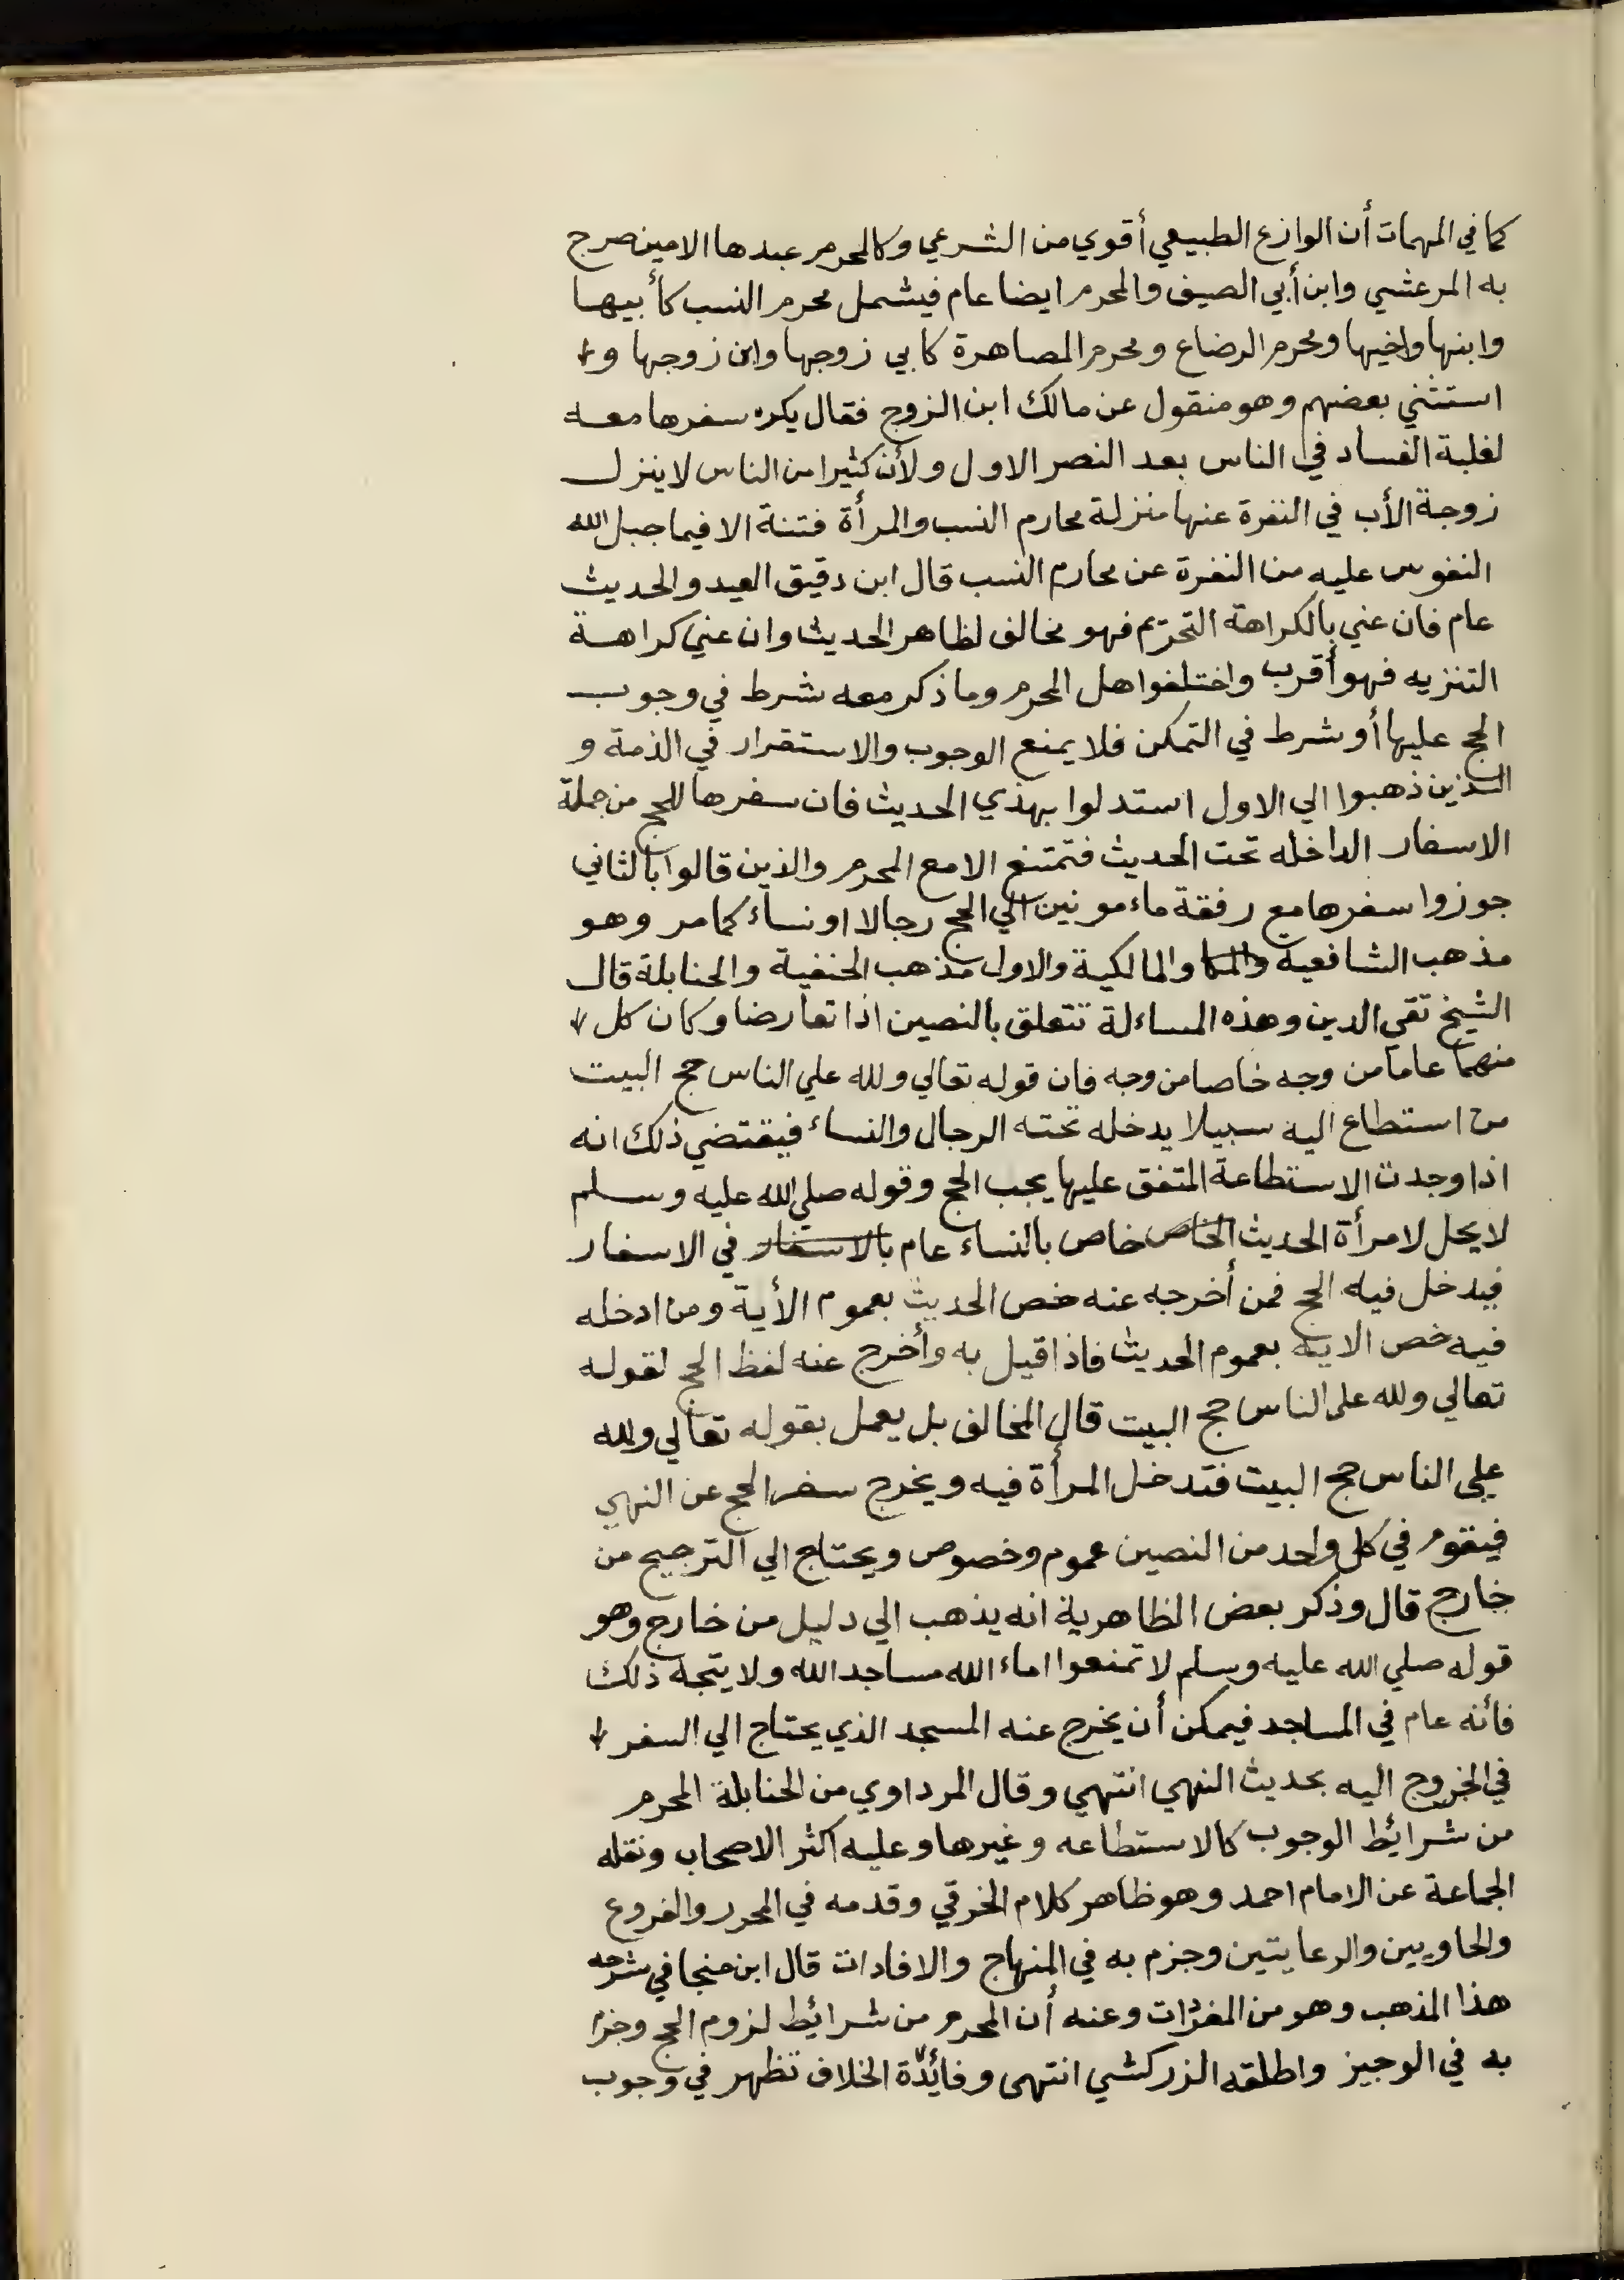 كما في المهمات أن الوازع الطبيعي أقوي من الشرعي وكالمحرم عبدها الامين صرح
به المرعشي وابن أبي الصيف والمحرم ايضا عام فيشمل محرم النسب كأبيها
وابنها واخيها ومحرم الرضاع ومحرم المصاهرة كابي زوجها وابن زوجها و
استثني بعضهم وهو منقول عن مالك ابن الزوج فقال يكره سفرها معه
لغلبة الفساد في الناس بعد النصر الاول ولأن كثيرا من الناس لا ينزل
زوجة الأب في النفرة عنها منزلة محارم النسب والمرأة فتنة الا فيما جبل الله
النفوس عليه من النفرة عن محارم النسب قال ابن دقيق العيد والحديث
عام فان عني بالكراهة التحريم فهو مخالف لظاهر الحديث وان عني كراهة
التنزيه فهو أقرب واختلفوا هل المحرم وما ذكر معه شرط في وجوب
الحج عليها أو شرط في التمكن فلا يمنع الوجوب والاستقرار في الذمة و
الذين ذهبوا الي الاول استدلوا بهذي الحديث فان سفرها للحج من جملة
الاسفار الداخله تحت الحديث فتمتنع الا مع المحرم والذين قالوا بالثاني
جوزوا سفرها مع رفقة ماءمونين الي الحج رجالا او نساء كما مر وهو
مذهب الشافعية والمكا والمالكية والاول مذهب الحنفية والحنابلة قال
الشيخ تقي الدين وهذه المساءلة تتعلق بالنصين اذا تعارضا وكان كل
منهما عاما من وجه خاصا من وجه فان قوله تعالي ولله علي الناس حج البيت
من استطاع اليه سبيلا يدخله تحته الرجال والنساء فيقتضي ذلك انه
اذا وجدت الاستطاعة المتفق عليها يجب الحج وقوله صلي الله عليه وسلم
لا يحل لامرأة الحديث الخاص خاص بالنساء عام بالاسفار في الاسفار
فيدخل فيه الحج فمن أخرجه عنه خص الحديث بعموم الأية ومن ادخله
فيه خص الاية بعموم الحديث فاذا قيل به وأخرج عنه لفظ الحج لقوله
تعالي ولله علي الناس حج البيت قال المخالف بل يعمل بقوله تعالي ولله
علي الناس حج البيت فتدخل المرأة فيه ويخرج سفر الحج عن النهي
فيقوم في كل واحد من النصين عموم وخصوص ويحتاج الي الترجيح من
خارج قال وذكر بعض الظاهرية انه يذهب الي دليل من خارج وهو
قوله صلي الله عليه وسلم لا تمنعوا اماء الله مساجد الله ولا يتجه ذلك
فأنه عام في المساجد فيمكن أن يخرج عنه المسجد الذي يحتاج الي السفر
في الخروج اليه بحديث النهي انتهي وقال المرداوي من الحنابلة المحرم
من شرائط الوجوب كالاستطاعه وغيرها وعليه اكثر الاصحاب ونقله
الجماعة عن الامام احمد وهو ظاهر كلام الخرقي وقدمه في المحرر والفروع
والحاويين والرعايتين وجزم به في المنهاج والافادات قال ابن منجا في شرحه
هذا المذهب وهو من المفردات وعنه أن المحرم من شرائط لزوم الحج وجزم
به في الوجيز واطلقه الزركشي انتهى وفائدة الخلاف تظهر في وجوب